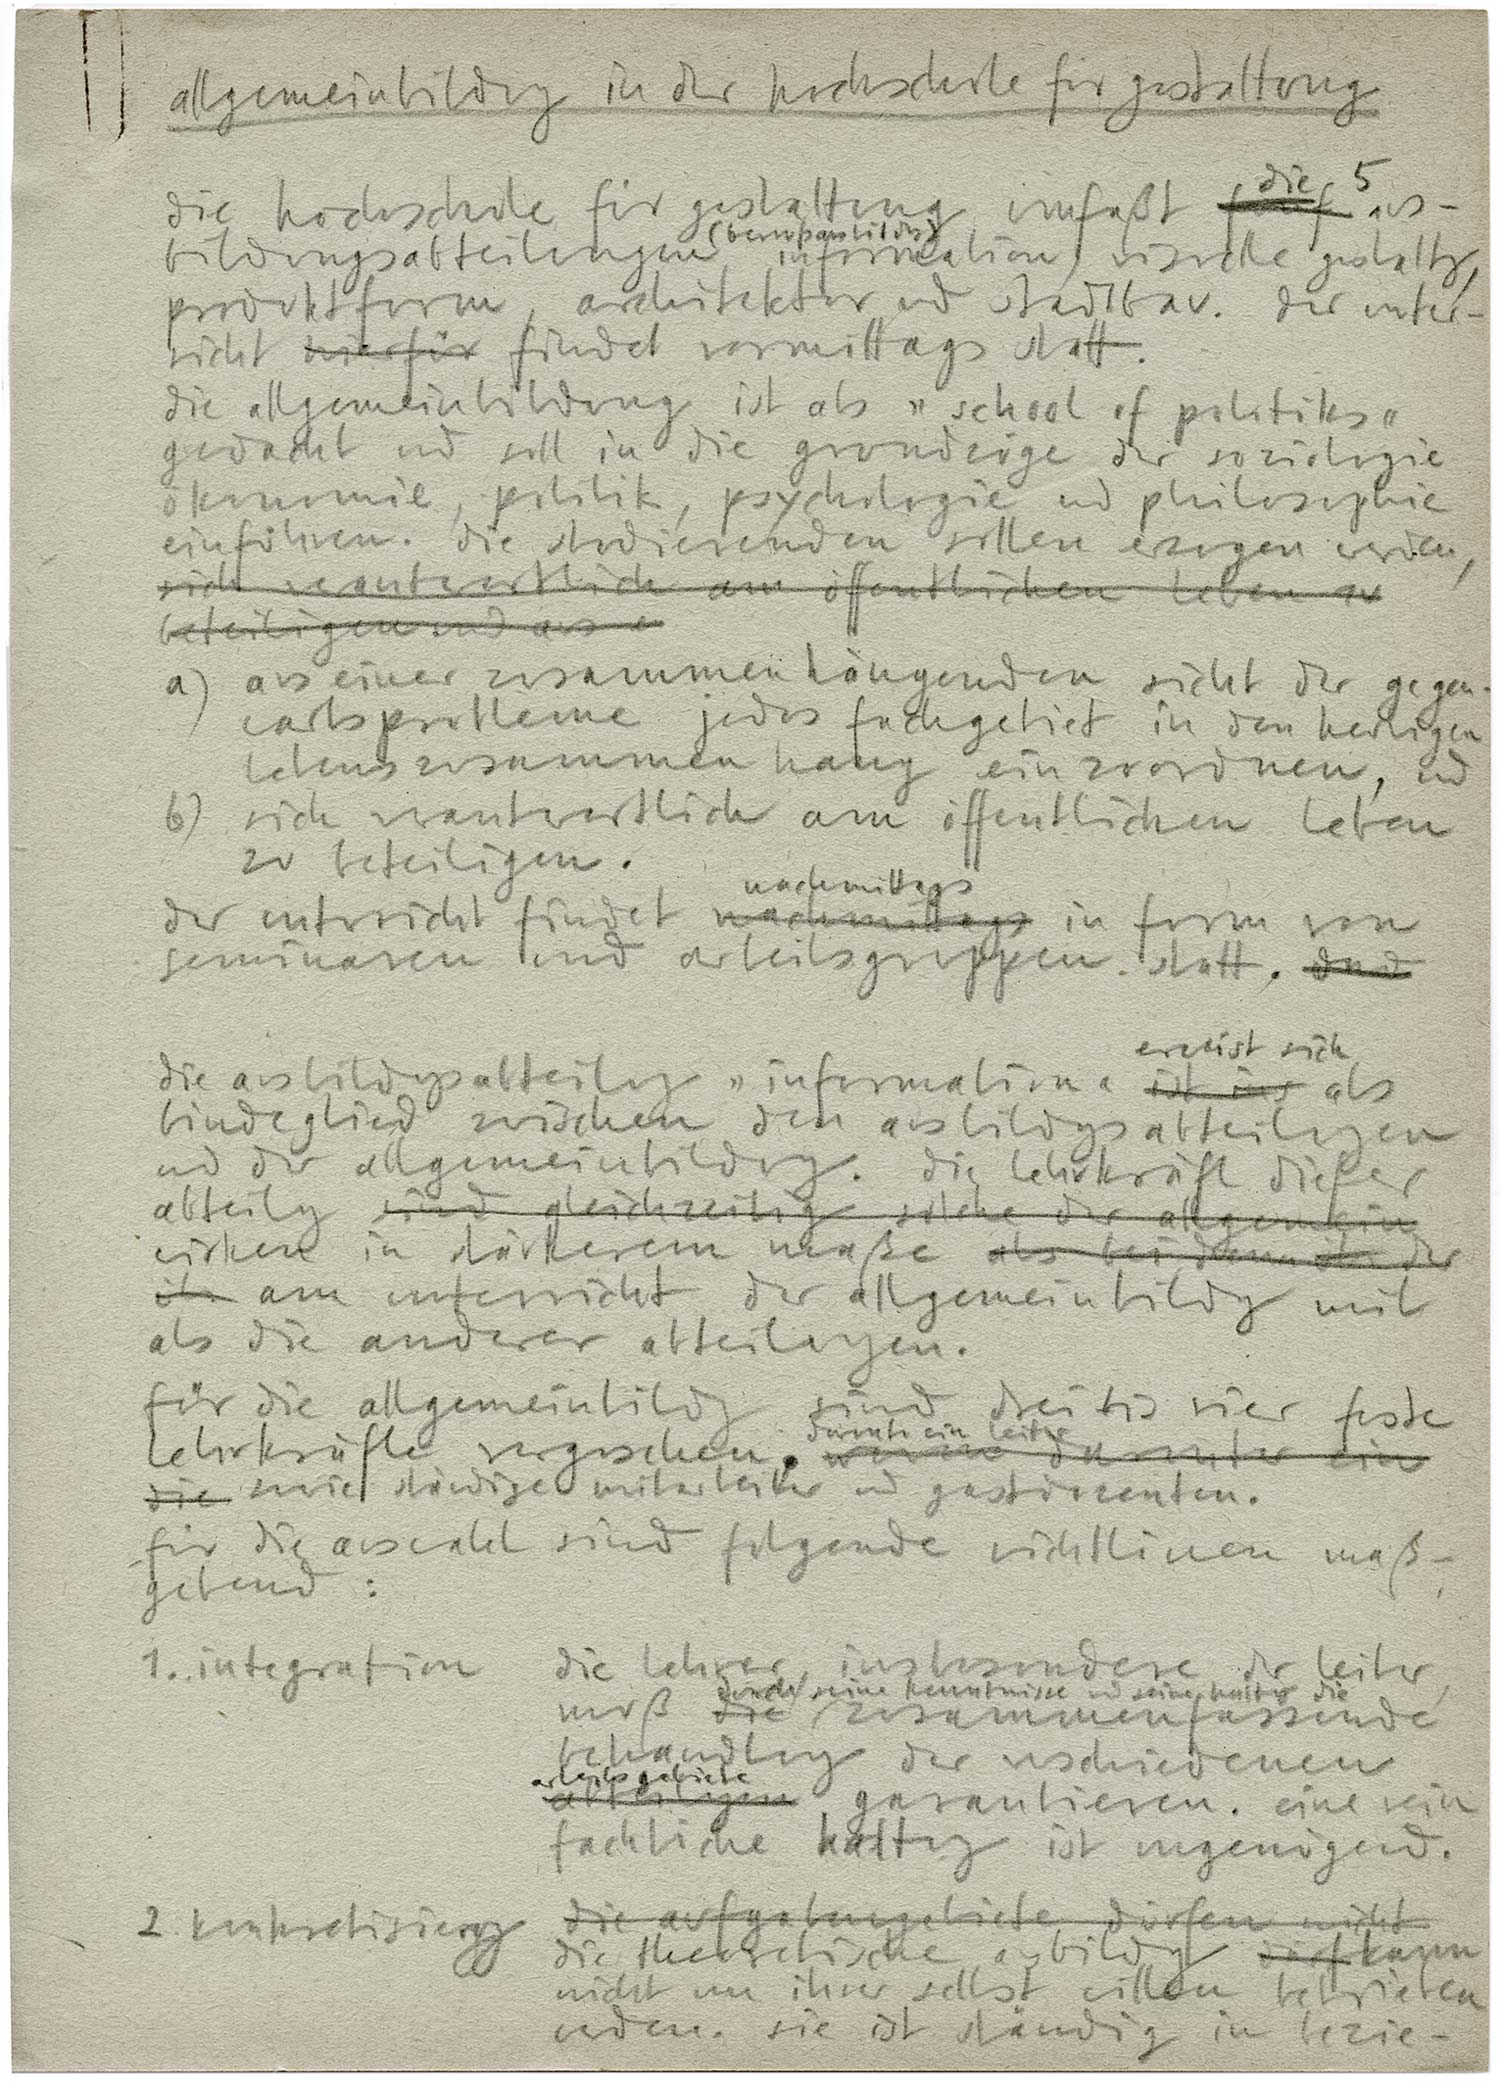 allgemeinbildung in der hochschule für gestaltung
die hochschule für gestaltung umfaßt fünf die 5 aus-
bildungsabteilungen (berufsausbildg) information, visuelle gestaltg,
produktform, architektur und stadtbau. der unter-
richt hierfür findet vormittags statt.
die allgemeinbildung ist als „school of politiks"
gedacht und soll in die grundzüge der soziologie
ökonomie, politik, psychologie und philosophie
einführen. die studierenden sollen erzogen werden,
sich verantwortlich am öffentlichen leben zu
beteiligen und aus e
a) aus einer zusammenhängenden sicht der gegen-
wartsprobleme jedes fachgebiet in den heutigen
lebenszusammenhang einzuordnen, und
b) sich verantwortlich am öffentlichen leben
zu beteiligen.
der unterricht findet nachmittags nachmittags in form von
seminaren und arbeitsgruppen statt. und
die ausbildgsabteilg „information" ist ins erweist sich als
bindeglied zwischen den ausbildgsabteilgen
und der allgemeinbildg. die lehrkräfte dieser
abteilg sind gleichzeitig solche der allgemein
wirken in stärkerem maße als bei der
am unterricht der allgemeinbildg mit
als die anderer abteilgen.
für die allgemeinbildg sind drei bis vier feste
lehrkräfte vorgesehen, darunter ein leiter darunter ein
die sowie ständige mitarbeiter und gastdozenten.
für die auswahl sind folgende richtlinien maß-
gebend:
1. integration die lehrer, insbesondere der leiter,
muß die durch seine kenntnisse und seine haltg die zusammenfassende
behandlg der verschiedenen
abteilgen arbeitsgebiete garantieren. eine rein
fachliche haltg ist ungenügend.
2. konkretisierg die aufgabengebiete dürfen nicht
die theoretische ausbildg darf kann
nicht um ihrer selbst willen betrieben
werden. sie ist ständig in bezie-